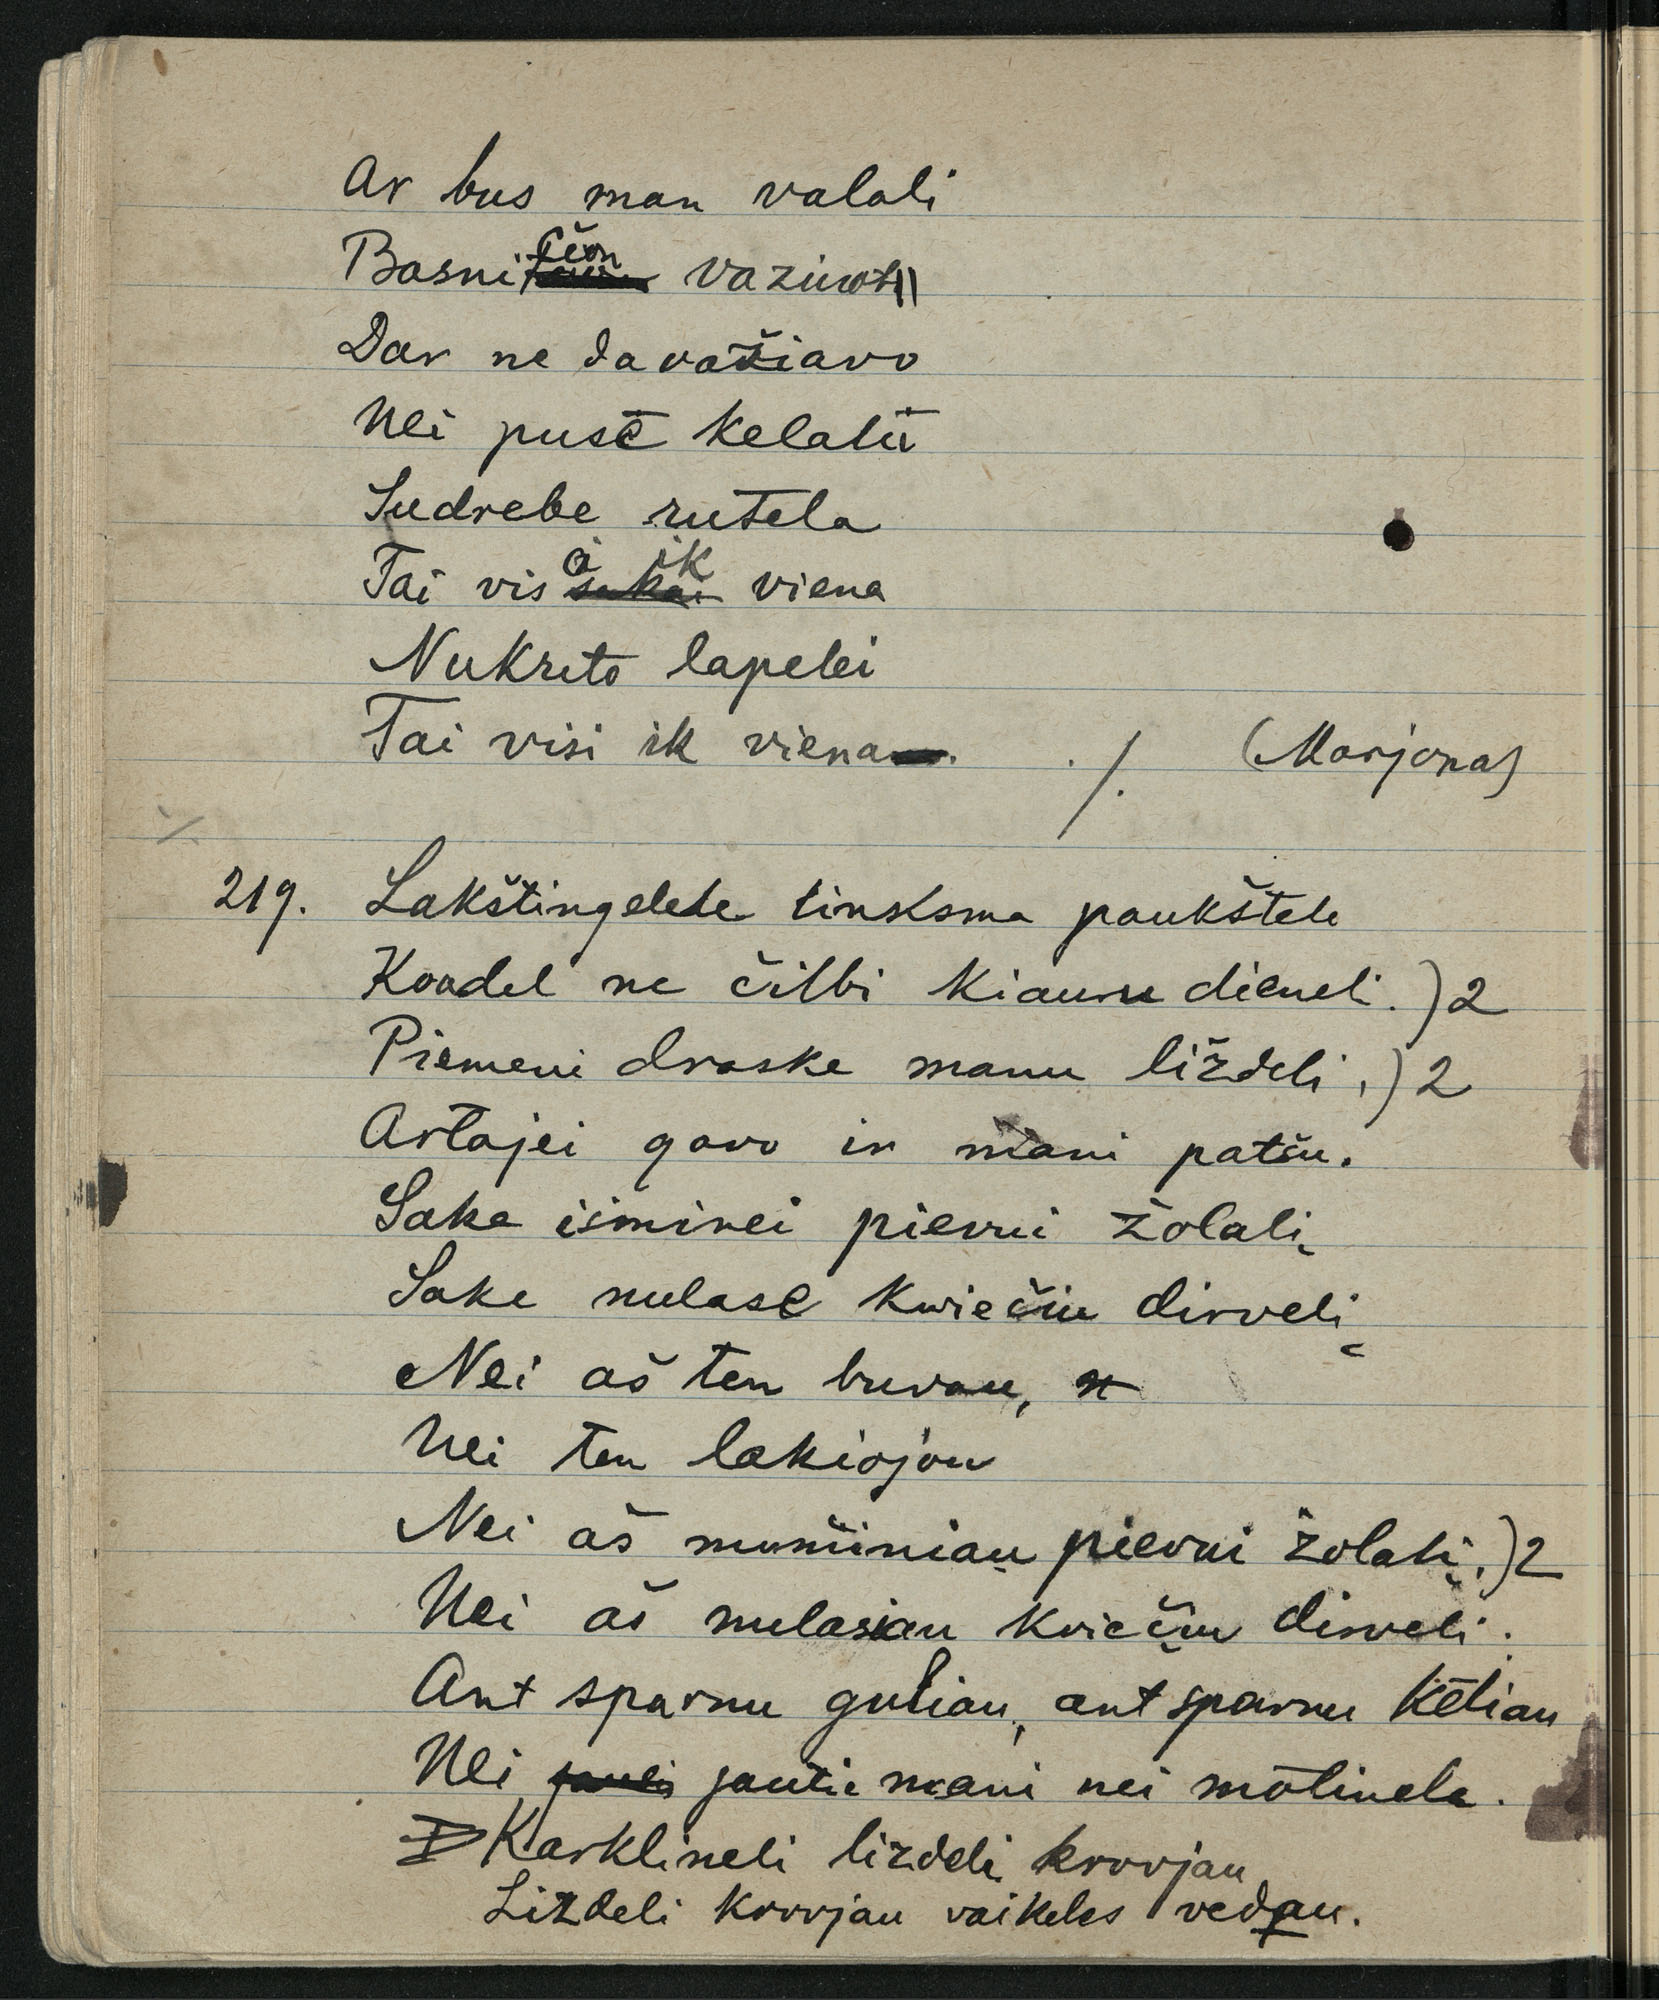 Ar bus man valali
Basničion vaziuoti
Dar ne davažiavo
Nei pusē kelalū
Sudrebe rutela
Tai visi ik viena
Nukrito lapelei
Tai visi ik viena. ./. (Marjona)
219. Lakštingelele linksma paukštele
Koadel ne čilbi kiaunu dieneli.)2
Piemeni draske manu liždeli,)2
Artojei gavo ir mani patšu.
Sake išminei pievui žolali,
Sake nulase kwiečiu dirveli
Nei aš ten buvau,
Nei ten lakiojou
Nei aš numiniau pievui žolali.)2
Nei aš nulasiau kviečiu dirveli.
Ant sparnu guliau, ant sparnu kēliau
Nei jautie mani nei mōtinela.
Karklineli lizdeli krovjau
Lizdeli krovjau vaikeles vedau.